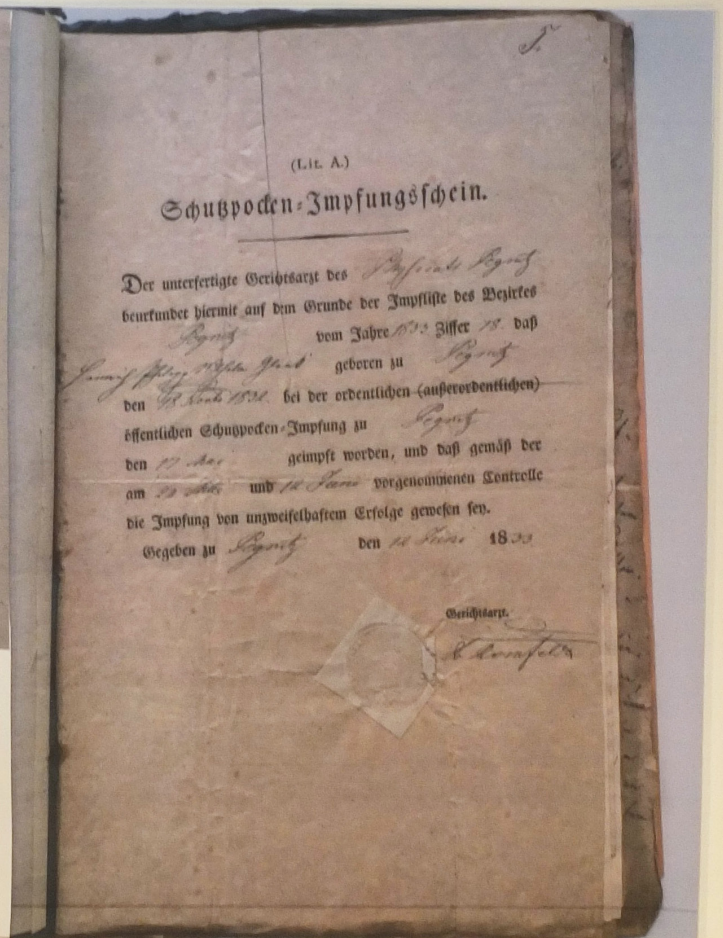 (Lit. A.)
Schutzpocken-Impfungsschein.
Der unterfertigte Gerichtsarzt des Physicats Pegnitz
beurkundet hiermit auf dem Grunde der Impfliste des Bezirkes
Pegnitz vom Jahre 1833 Ziffer 18. daß
Heinrich Philipp Wilhelm geboren zu Pegnitz
den 1832. bei der ordentlichen (außerordentlichen)
öffentlichen Schutzpocken-Impfung zu Pegnitz
den 17 Mai geimpft worden, und daß gemäß der
am und 12 Juni vorgenommenen Controlle
die Impfung von unzweifelhaftem Erfolge gewesen sey.
Gegeben zu Pegnitz den 12 Juni 1833
Gerichtsarzt.